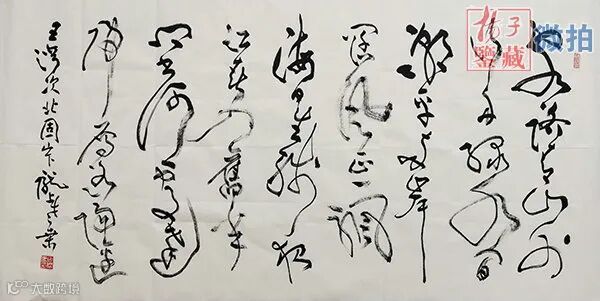 客路青山外
行舟绿水前
潮平两岸
阔風正一帆
海日生残夜
江春入舊年
乡书何处達
归雁洛阳边
王湾次北固山下
子
鉴藏
微拍
大数跨境